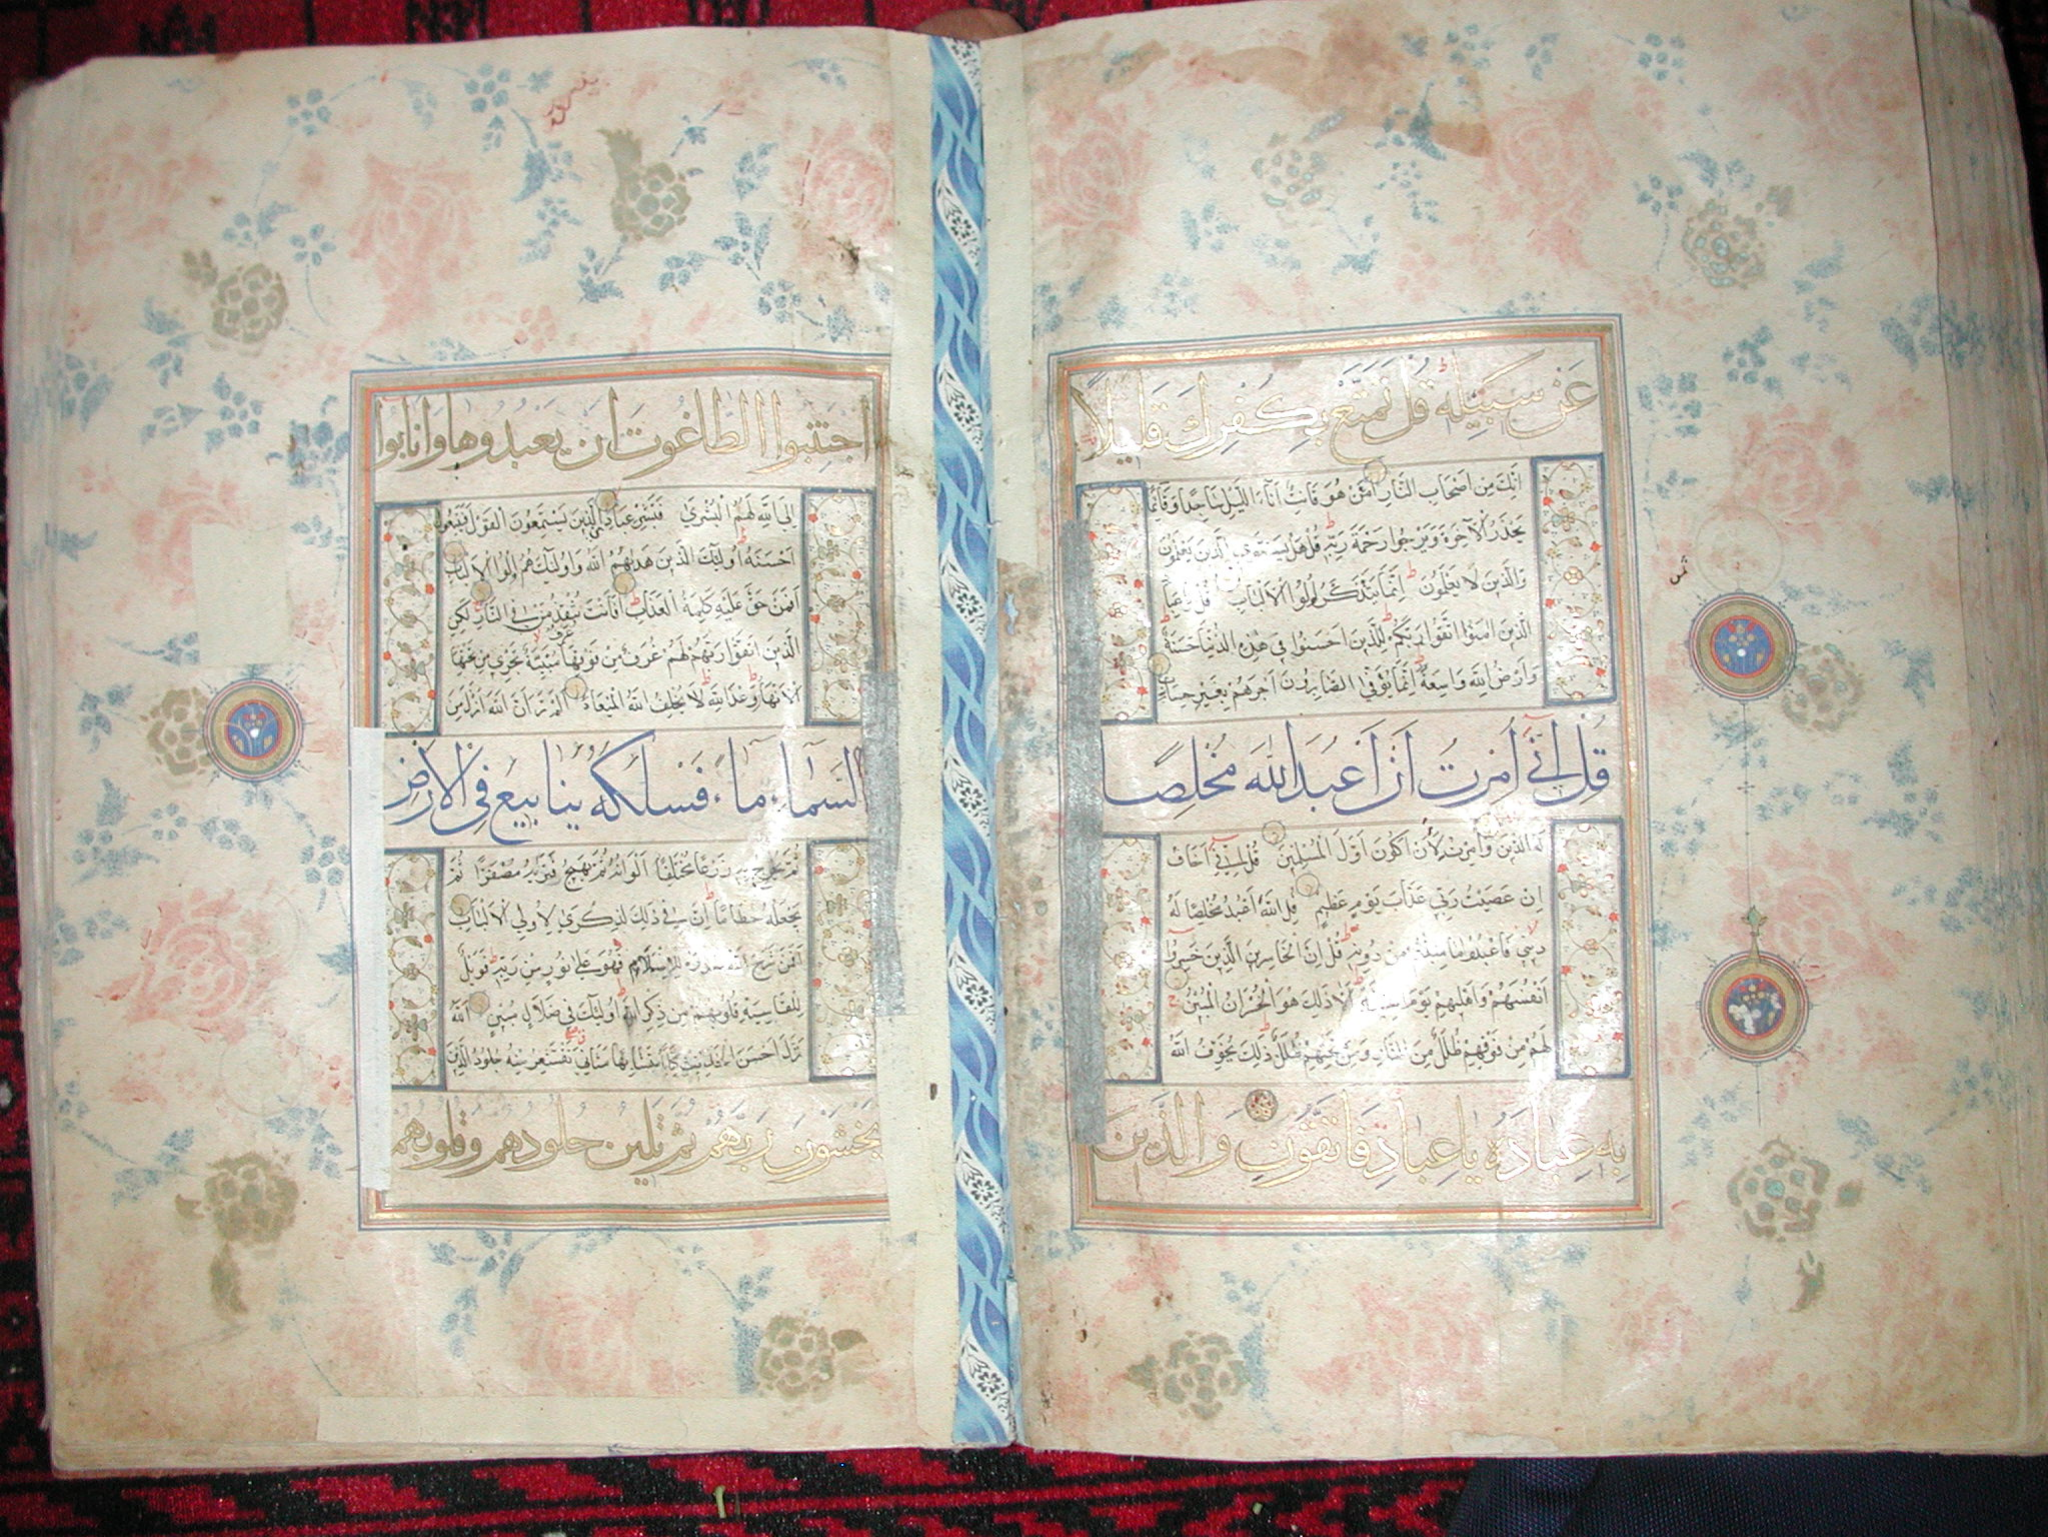 عَن سَبِيلِهِ قُل تَمَتَّع بِكُفرِكَ قَلِيلًا
اِنَّكَ مِن اَصحَابِ النَّارِ اَمَّن هُوَ قَانِتٌ اٰنَاءَ اللَّيلِ سَاجِدًا وَقَائِمًا
يَحذَرُ الاٰخِرَةَ وَيَرجُوا رَحمَةَ رَبِّهِ قُل هَل يَستَوِي الَّذِينَ يَعلَمُونَ
وَالَّذِينَ لَا يَعلَمُونَ اِنَّمَا يَتَذَكَّرُ اُولُوا الاَلبَابِ قُل يَا عِبَادِ
الَّذِينَ اٰمَنُوا اتَّقُوا رَبَّكُم لِلَّذِينَ اَحسَنُوا فِي هٰذِهِ الدُّنيَا حَسَنَةٌ
وَاَرضُ اللّٰهِ وَاسِعَةٌ اِنَّمَا يُوَفَّى الصَّابِرُونَ اَجرَهُم بِغَيرِ حِسَابٍ
قُل اِنِّي اُمِرتُ اَن اَعبُدَ اللّٰهَ مُخلِصًا
لَهُ الدِّينَ وَاُمِرتُ لِاَن اَكُونَ اَوَّلَ المُسلِمِينَ قُل اِنِّي اَخَافُ
اِن عَصَيتُ رَبِّي عَذَابَ يَومٍ عَظِيمٍ قُلِ اللّٰهَ اَعبُدُ مُخلِصًا لَهُ
دِينِي فَاعبُدُوا مَا شِئتُم مِن دُونِهِ قُل اِنَّ الخَاسِرِينَ الَّذِينَ خَسِرُوا
اَنفُسَهُم وَاَهلِيهِم يَومَ القِيٰمَةِ اَلَا ذٰلِكَ هُوَ الخُسرَانُ المُبِينُ
لَهُم مِن فَوقِهِم ظُلَلٌ مِنَ النَّارِ وَمِن تَحتِهِم ظُلَلٌ ذٰلِكَ يُخَوِّفُ اللّٰهُ
بِهِ عِبَادَهُ يَا عِبَادِ فَاتَّقُونِ وَالَّذِينَ
اجتَنَبُوا الطَّاغُوتَ اَن يَعبُدُوهَا وَاَنَابُوا
اِلَى اللّٰهِ لَهُمُ البُشرَى فَبَشِّر عِبَادِ الَّذِينَ يَستَمِعُونَ القَولَ فَيَتَّبِعُونَ
اَحسَنَهُ اُولٰئِكَ الَّذِينَ هَدٰيهُمُ اللّٰهُ وَاُولٰئِكَ هُم اُولُوا الاَلبَابِ
اَفَمَن حَقَّ عَلَيهِ كَلِمَةُ العَذَابِ اَفَاَنتَ تُنقِذُ مَن فِي النَّارِ لٰكِنِ
الَّذِينَ اتَّقَوا رَبَّهُم لَهُم غُرَفٌ مِن فَوقِهَا غُرَفٌ مَبنِيَّةٌ تَجرِي مِن تَحتِهَا
الاَنهَارُ وَعدَ اللّٰهِ لَا يُخلِفُ اللّٰهُ المِيعَادَ اَلَم تَرَ اَنَّ اللّٰهَ اَنزَلَ مِنَ
السَّمَاءِ مَاءً فَسَلَكَهُ يَنَابِيعَ فِي الاَرضِ
ثُمَّ يُخرِجُ بِهِ زَرعًا مُختَلِفًا اَلوَانُهُ ثُمَّ يَهِيجُ فَتَرٰيهُ مُصفَرًّا ثُمَّ
يَجعَلُهُ حُطَامًا اِنَّ فِي ذٰلِكَ لَذِكرَى لِاُولِي الاَلبَابِ
اَفَمَن شَرَحَ اللّٰهُ صَدرَهُ لِلاِسلَامِ فَهُوَ عَلَى نُورٍ مِن رَبِّهِ فَوَيلٌ
لِلقَاسِيَةِ قُلُوبُهُم مِن ذِكرِ اللّٰهِ اُولٰئِكَ فِي ضَلَالٍ مُبِينٍ اَللّٰهُ
نَزَّلَ اَحسَنَ الحَدِيثِ كِتَابًا مُتَشَابِهًا مَثَانِيَ تَقشَعِرُّ مِنهُ جُلُودُ الَّذِينَ
يَخشَونَ رَبَّهُم ثُمَّ تَلِينُ جُلُودُهُم وَقُلُوبُهُم